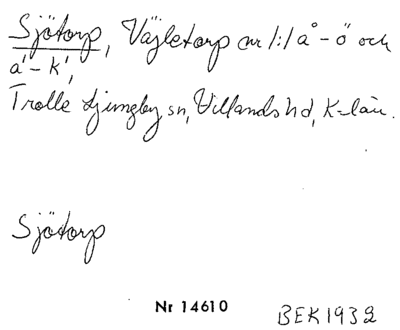 Sjötorp, Väjletorp nr 1:1 å-ö och
a'-k',
Trolle Ljungby sn, Villands hd, K-län.
Sjötorp
Nr 14610
BEK 1932